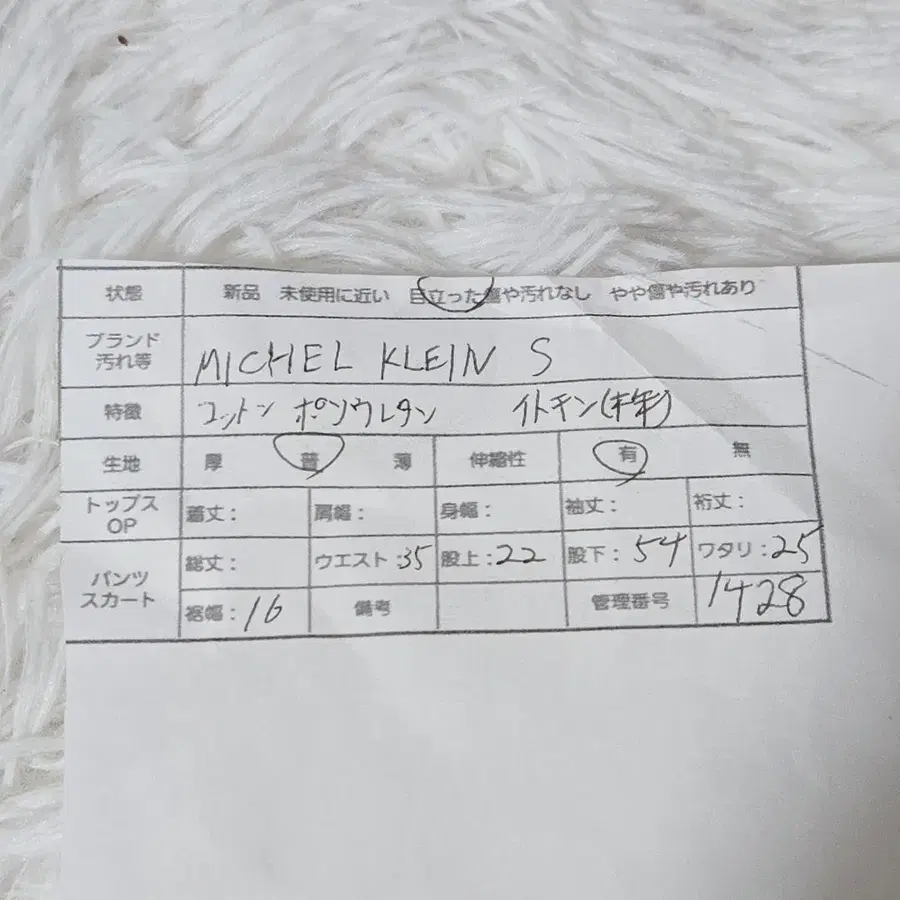 状態 新品 未使用に近い 目立った傷や汚れなし やや傷や汚れあり
ブランド
汚れ等 MICHEL KLEIN S
特徴 コットン ポリウレタン イトキン(株)
生地 厚 普 薄 伸縮性 有 無
トップス
OP 着丈: 肩幅: 身幅: 袖丈: 裄丈:
パンツ
スカート 総丈: ウエスト:35 股上:22 股下:54 ワタリ:25
裾幅:16 備考 管理番号 1428